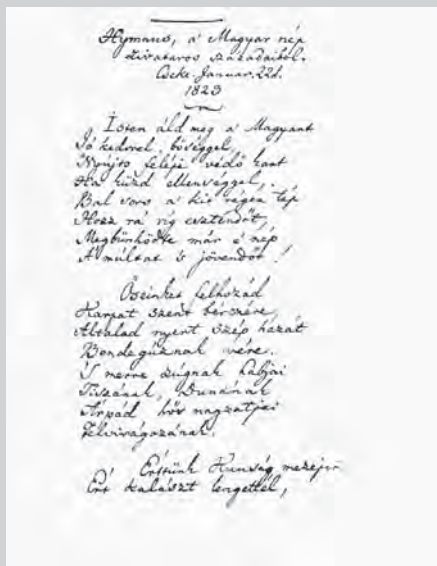 Hymnus, a' Magyar nép
zivataros századaiból.
Cseke. Januar. 22d.
1823
Isten áld meg a' Magyart
Jó kedvvel, bőséggel,
Nyújts feléje védő kart
Ha küzd ellenséggel,
Bal sors a' kit régen tép
Hozz rá víg esztendőt,
Megbűnhődte már e' nép
A' múltat 's jövendőt!
Őseinket felhozád
Kárpát szent bérczére,
Általad nyert szép hazát
Bendegúznak vére.
'S merre zúgnak habjai
Tiszának, Dunának
Árpád hős magzatjai
Felvirágozának.
Értünk Kunság mezején
Ért kalászt lengettél,